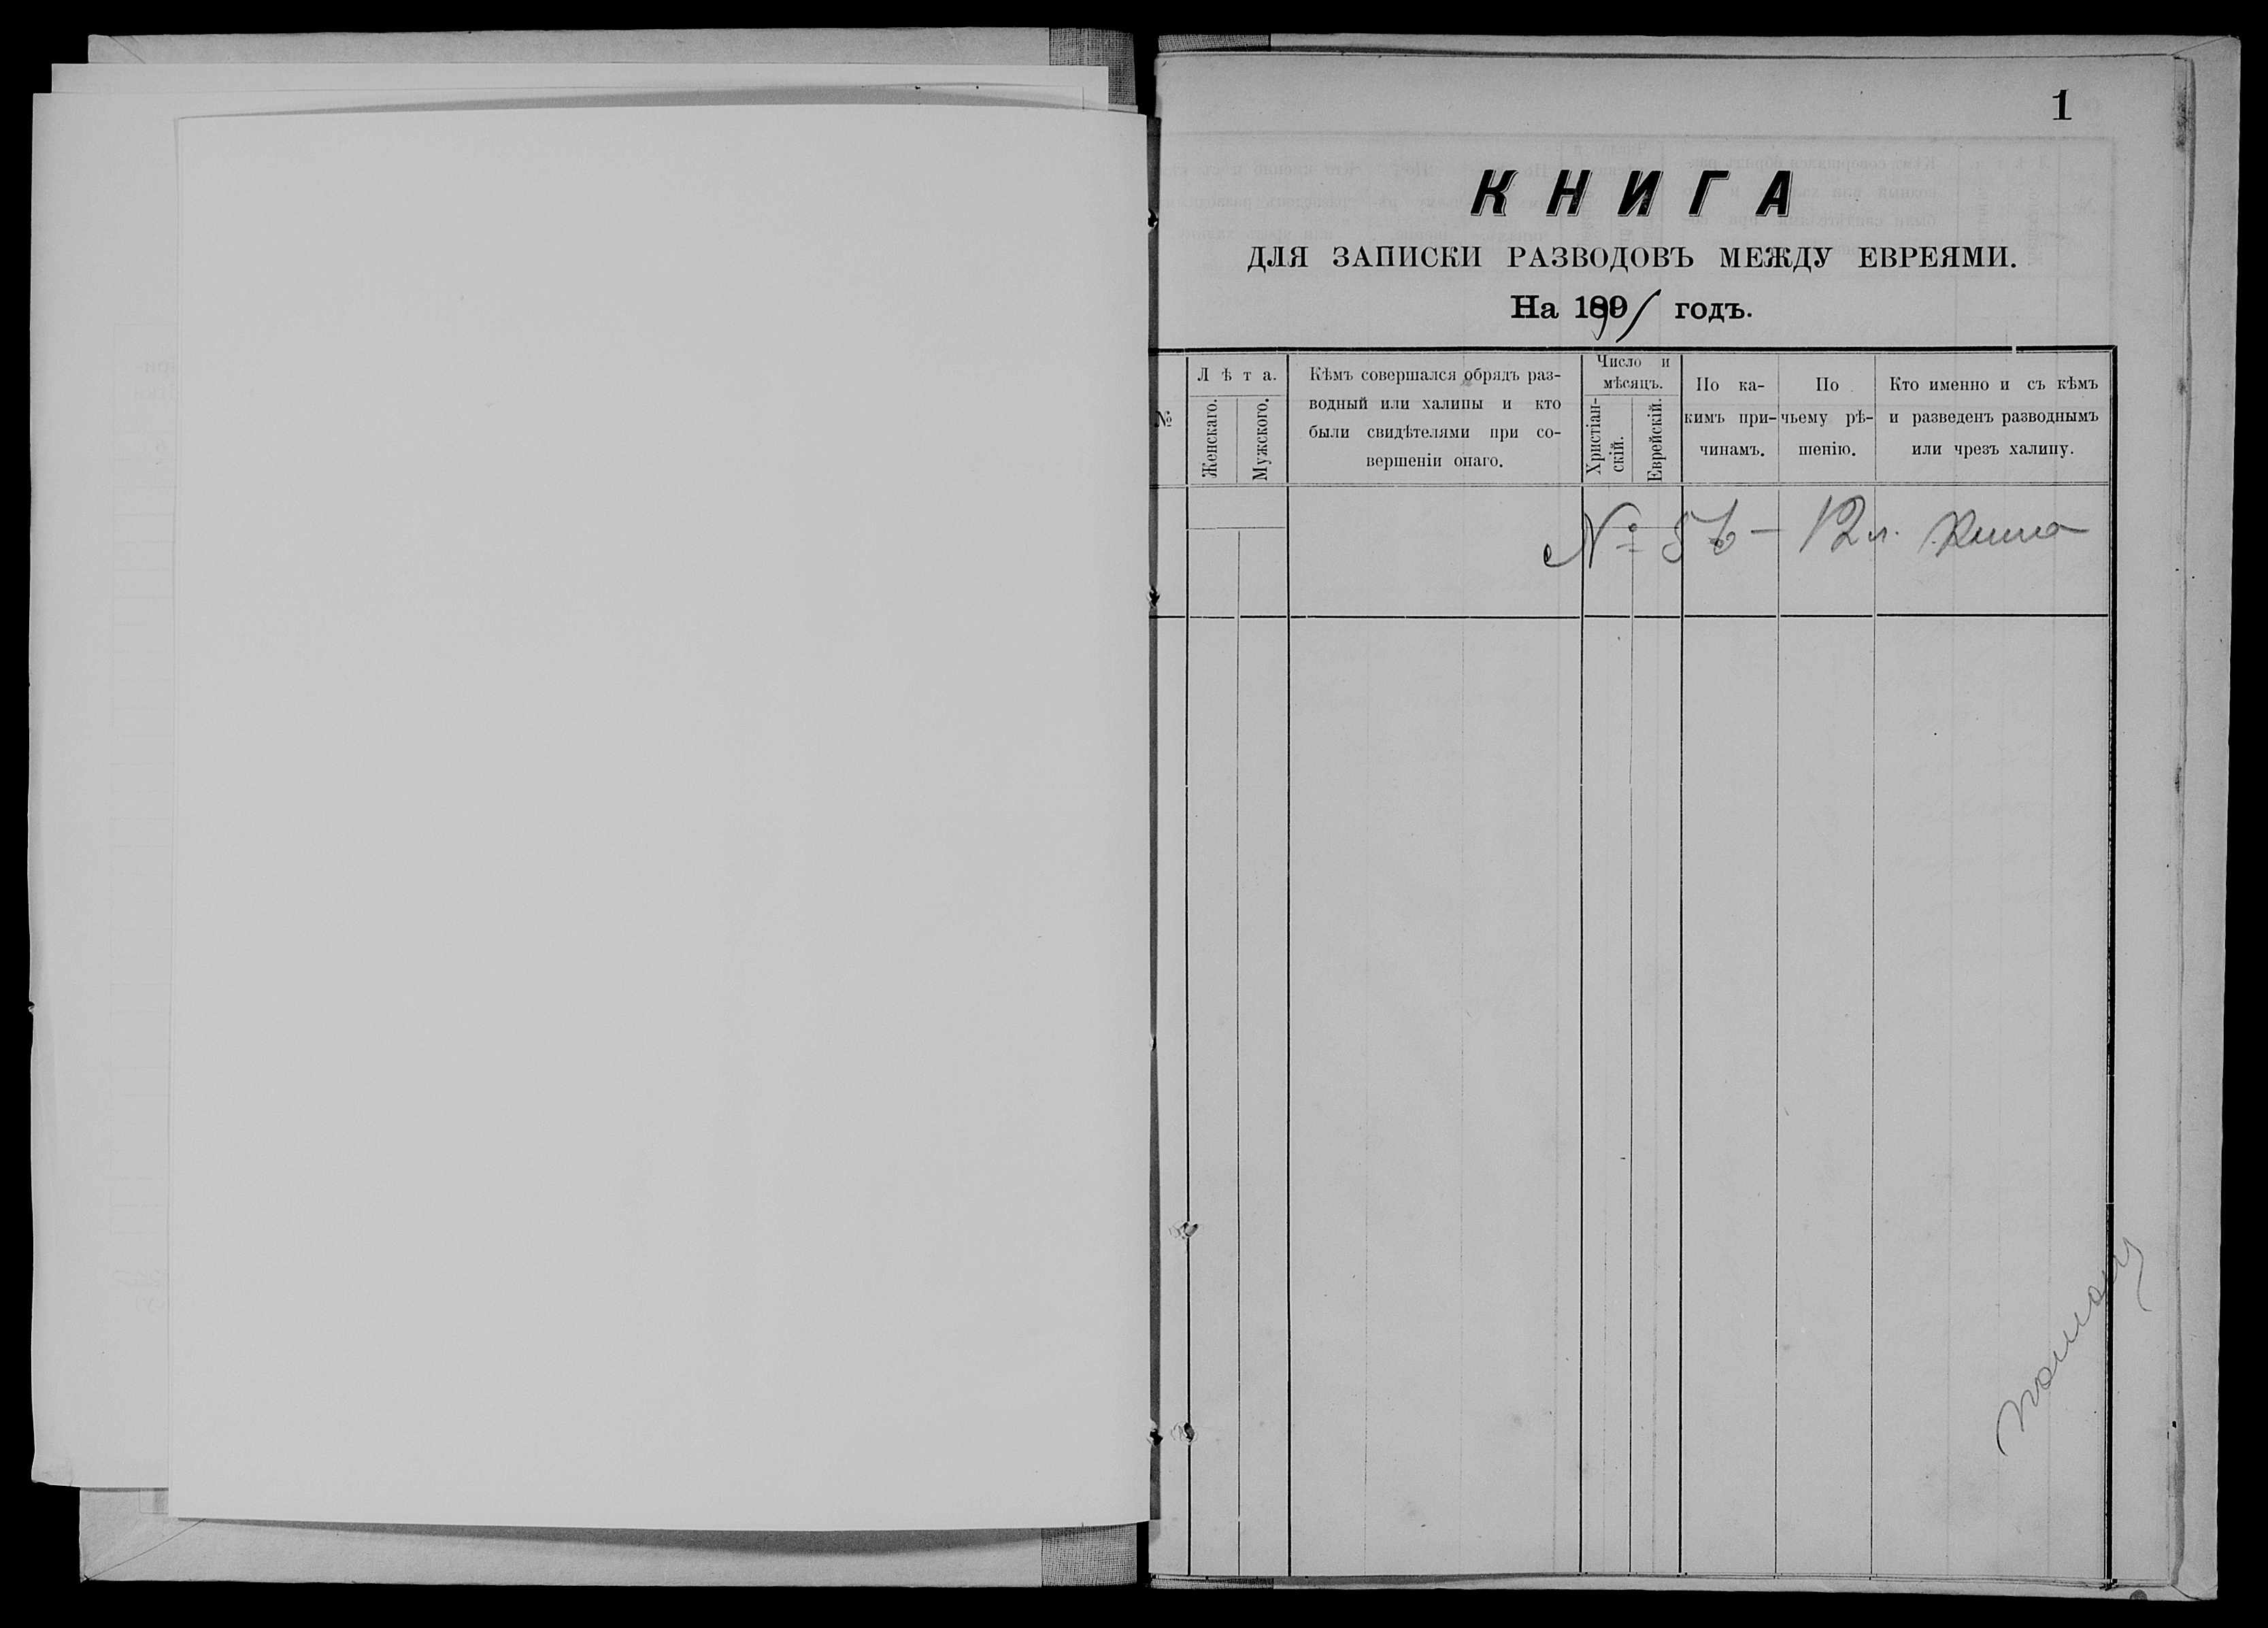 1
КНИГА
ДЛЯ ЗАПИСКИ РАЗВОДОВЪ МЕЖДУ ЕВРЕЯМИ.
На 1895 годъ.
№
Лѣта.
Женскаго.
Мужскаго.
Кѣмъ совершался обрядъ раз-
водный или халицы и кто
были свидѣтелями при со-
вершеніи онаго.
Число и
мѣсяцъ.
Христіан-
скій.
Еврейскій.
По ка-
кимъ при-
чинамъ.
По
чьему рѣ-
шенію.
Кто именно и съ кѣмъ
и разведенъ разводнымъ
или чрезъ халицу.
№ 56 - 12 л.